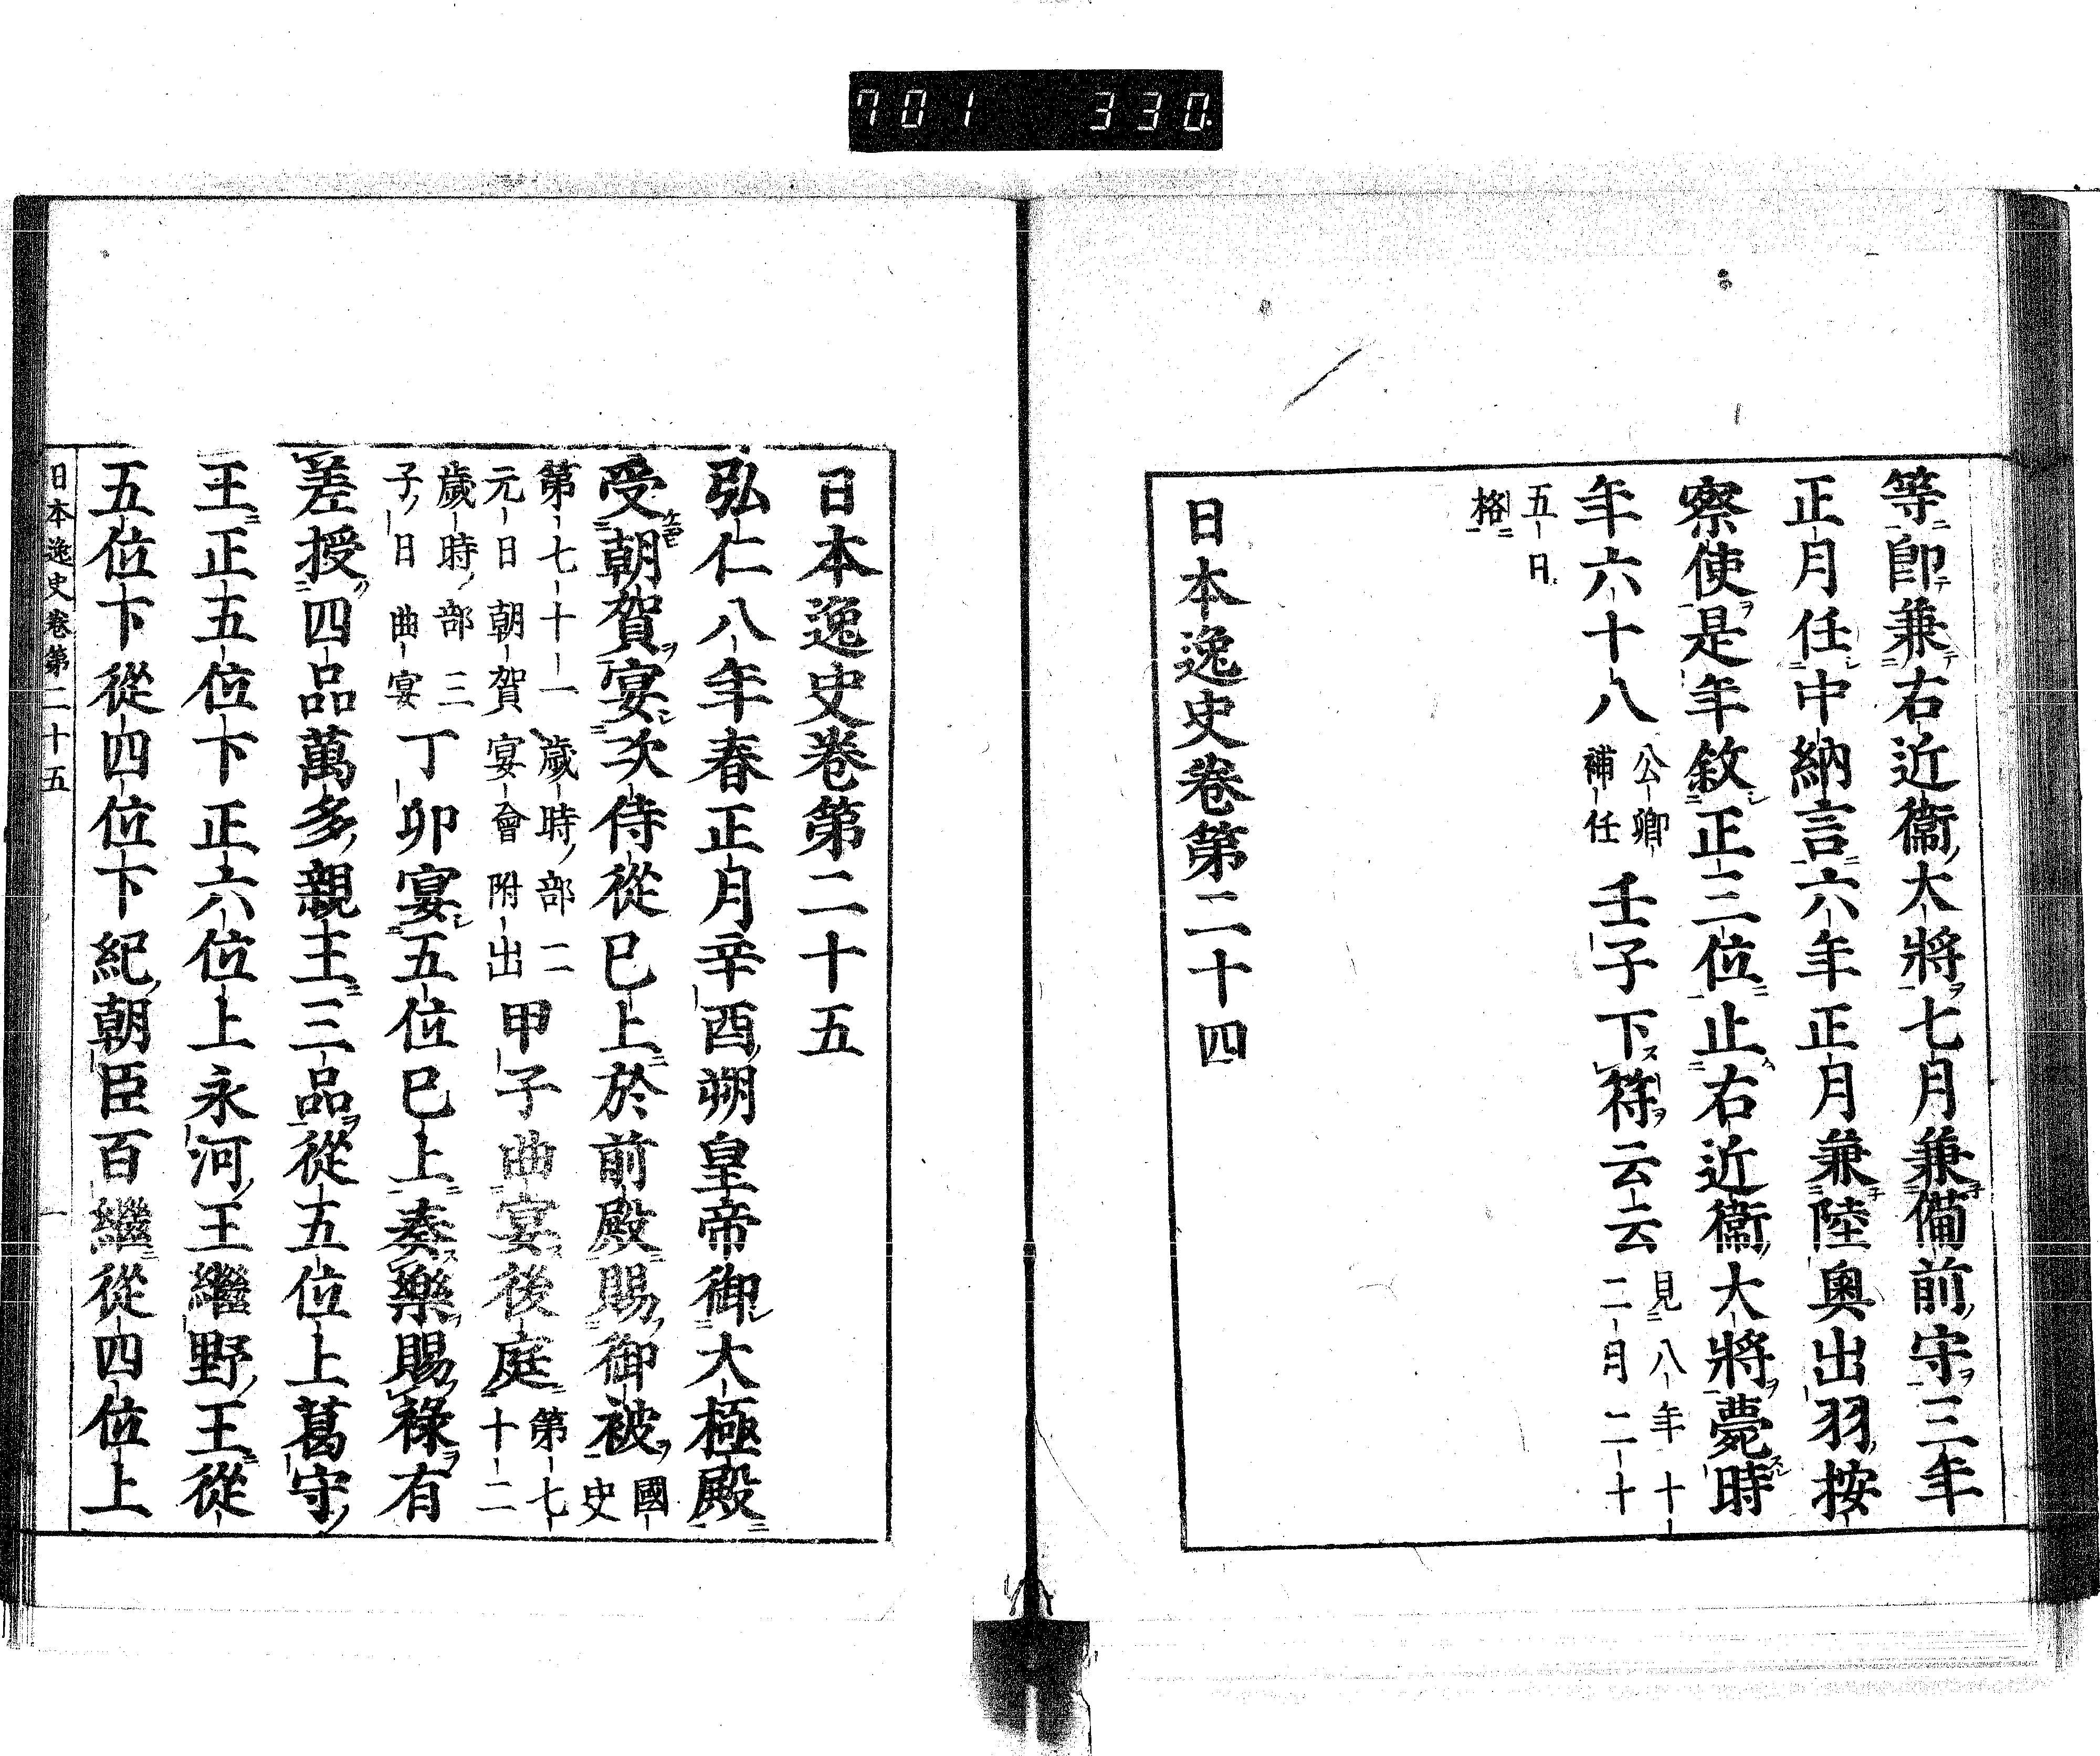 701 330
等即兼右近衞大將七月兼備前守三年
正月任中納言六年正月兼陸奧出羽按
察使是年敘正三位止右近衞大將薨時
年六十八公卿補任壬子下符云云見八年十二月二十
五日格
日本逸史卷第二十四
日本逸史卷第二十五
弘仁八年春正月辛酉朔皇帝御大極殿
受朝賀宴次侍從已上於前殿賜御被國史
第七十一歲時部二元日朝賀宴會附出甲子曲宴後庭第七十二
歲時部三子日曲宴丁卯宴五位已上奏樂賜祿有
差授四品萬多親王三品從五位上葛守
王正五位下正六位上永河王繼野王從
五位下從四位下紀朝臣百繼從四位上
日本逸史卷第二十五 一